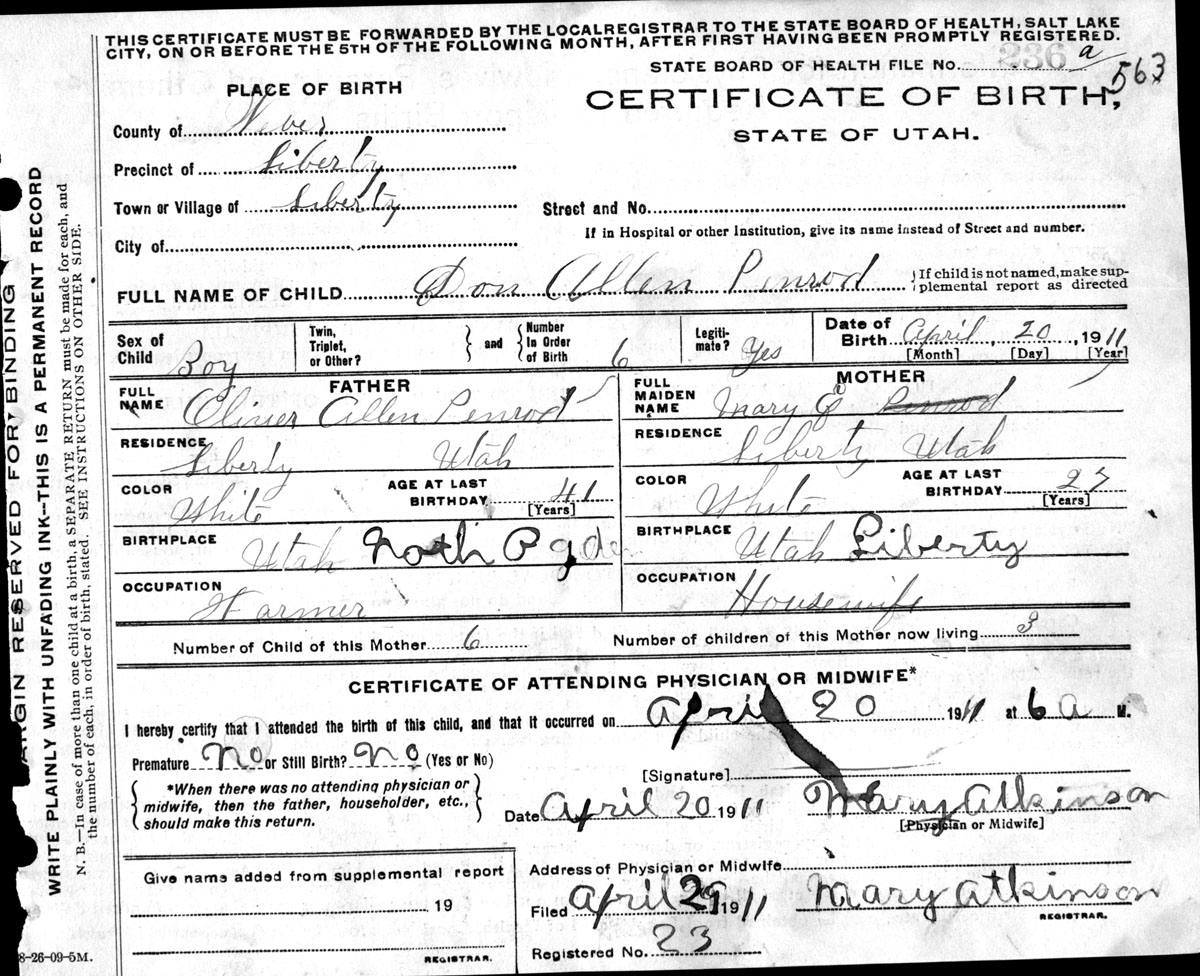 THIS CERTIFICATE MUST BE FORWARDED BY THE LOCALREGISTRAR TO THE STATE BOARD OF HEALTH, SALT LAKE
CITY, ON OR BEFORE THE 5TH OF THE FOLLOWING MONTH, AFTER FIRST HAVING BEEN PROMPTLY REGISTERED.
STATE BOARD OF HEALTH FILE NO. 236 a
563
PLACE OF BIRTH
CERTIFICATE OF BIRTH,
STATE OF UTAH.
County of Weber
Precinct of Liberty
Town or Village of Liberty
Street and No.
City of
If in Hospital or other Institution, give its name instead of Street and number.
FULL NAME OF CHILD Don Allen Penrod
If child is not named, make sup-
plemental report as directed
Sex of Child Boy
Twin, Triplet, or Other?
and
Number In Order of Birth 6
Legiti-mate? Yes
Date of Birth April, 20, 1911
[Month] [Day] [Year]
FATHER
FULL NAME Elmer Allen Penrod
RESIDENCE Liberty Utah
COLOR White
AGE AT LAST BIRTHDAY 41
[Years]
BIRTHPLACE Utah Noth Ogden
OCCUPATION Farmer
MOTHER
FULL MAIDEN NAME Mary E Penrod
RESIDENCE Liberty Utah
COLOR White
AGE AT LAST BIRTHDAY
[Years]
BIRTHPLACE Utah Liberty
OCCUPATION Housewife
Number of Child of this Mother 6
Number of children of this Mother now living 3
CERTIFICATE OF ATTENDING PHYSICIAN OR MIDWIFE*
I hereby certify that I attended the birth of this child, and that it occurred on April 20 1911 at 6 a M.
Premature No or Still Birth? No (Yes or No)
*When there was no attending physician or
midwife, then the father, householder, etc.,
should make this return.
[Signature]
Date April 20 1911 Mary Atkinson
[Physician or Midwife]
Give name added from supplemental report
19
REGISTRAR.
Address of Physician or Midwife
Filed April 29 1911 Mary Atkinson
REGISTRAR.
Registered No. 23
8-26-09-5M.
MARGIN RESERVED FOR BINDING
WRITE PLAINLY WITH UNFADING INK--THIS IS A PERMANENT RECORD
N. B.--In case of more than one child at a birth, a SEPARATE RETURN must be made for each, and
the number of each, in order of birth, stated. SEE INSTRUCTIONS ON OTHER SIDE.